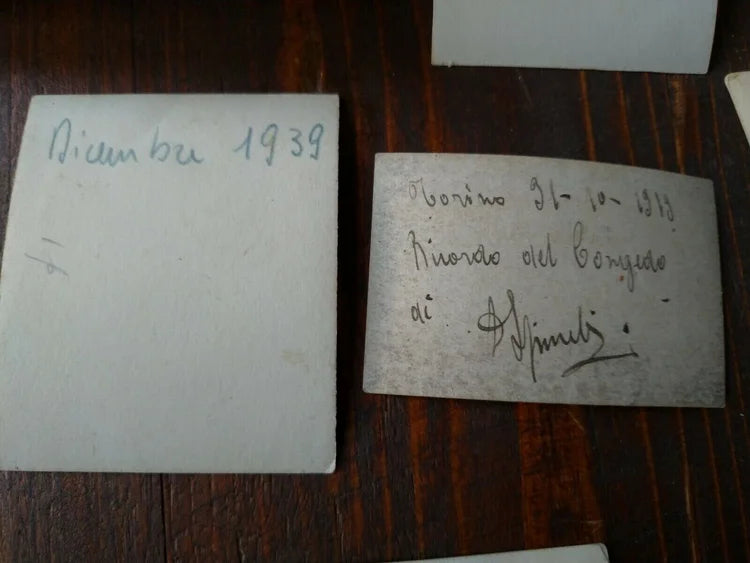 Dicembre 1939
Torino 31-10-1919
Ricordo del Congedo
di